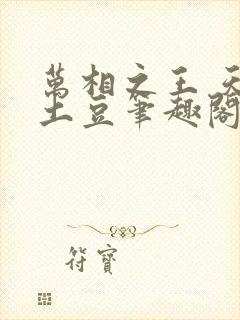 萬相之王 天
土豆筆趣閣
符寶